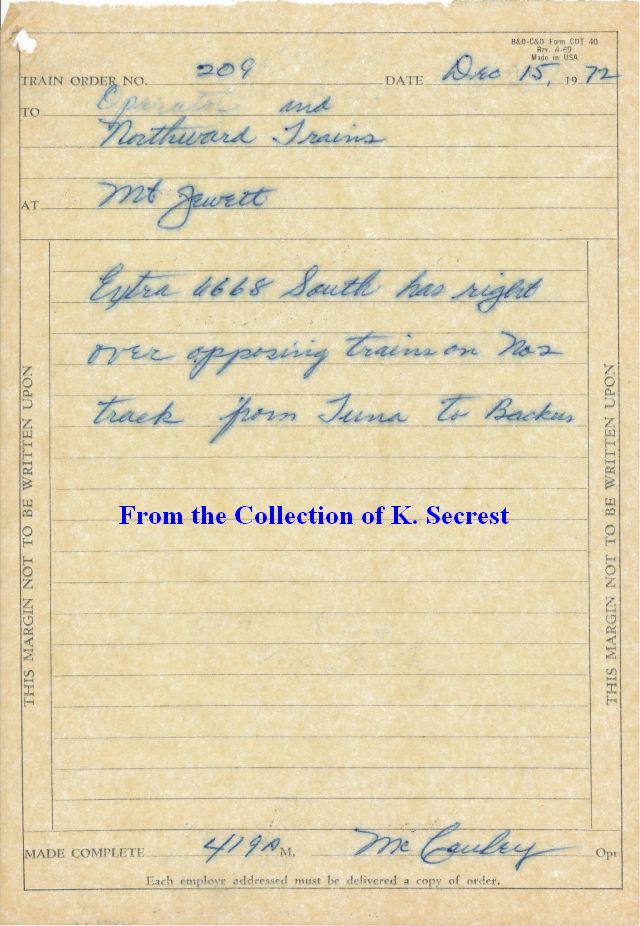 B&O-C&O Form CDT 40
Rev. 4-69
Made in USA
TRAIN ORDER NO. 209 DATE Dec 15, 1972
TO Operator and
Northward Trains
AT Mt Jewett
Extra 6668 South has right
over opposing trains on No 2
track from Tuna to Backus
THIS MARGIN NOT TO BE WRITTEN UPON
THIS MARGIN NOT TO BE WRITTEN UPON
From the Collection of K. Secrest
MADE COMPLETE 419 A M. McCauley Opr
Each employe addressed must be delivered a copy of order.